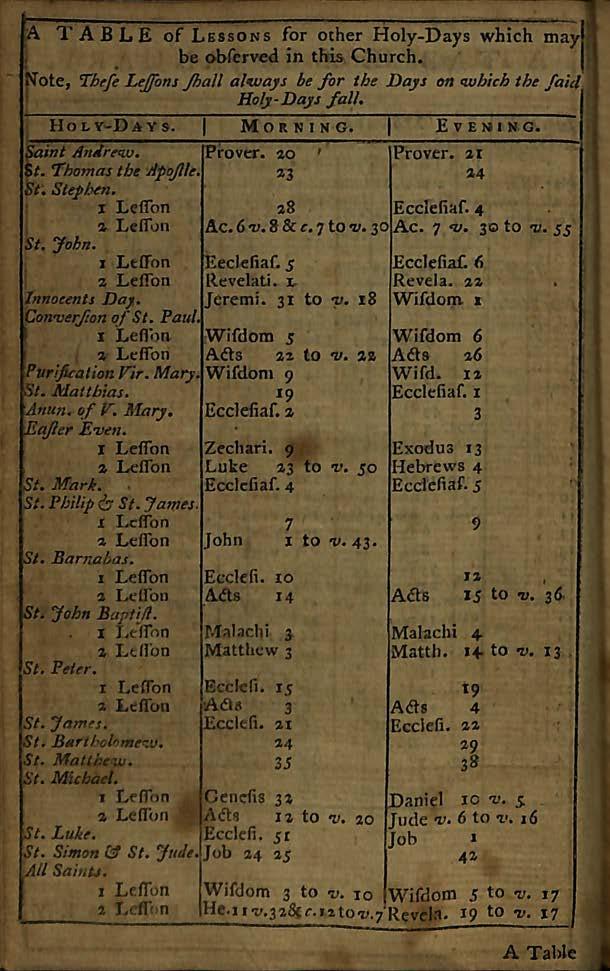 A TABLE of LESSONS for other Holy-Days which may
be obſerved in this Church.
Note, Theſe Leſſons ſhall always be for the Days on which the ſaid
Holy-Days fall.
HOLY-DAYS. | MORNING. | EVENING.
Saint Andrew. Prover. 20 Prover. 21
St. Thomas the Apoſtle. 23 24
St. Stephen.
1 Leſſon 28 Eccleſiaſ. 4
2 Leſſon Ac. 6 v. 8 & c. 7 to v. 30 Ac. 7 v. 30 to v. 55
St. John.
1 Leſſon Eecleſiaſ. 5 Eccleſiaſ. 6
2 Leſſon Revelati. 1 Revela. 22
Innocents Day. Jeremi. 31 to v. 18 Wiſdom 1
Converſion of St. Paul.
1 Leſſon Wiſdom 5 Wiſdom 6
2 Leſſon Acts 22 to v. 22 Acts 26
Purification Vir. Mary. Wiſdom 9 Wiſd. 12
St. Matthias. 19 Eccleſiaſ. 1
Anun. of V. Mary. Eccleſiaſ. 2 3
Eaſter Even.
1 Leſſon Zechari. 9 Exodus 13
2 Leſſon Luke 23 to v. 50 Hebrews 4
St. Mark. Eccleſiaſ. 4 Eccleſiaſ. 5
St. Philip & St. James.
1 Leſſon 7 9
2 Leſſon John 1 to v. 43.
St. Barnabas.
1 Leſſon Eccleſi. 10 12
2 Leſſon Acts 14 Acts 15 to v. 36
St. John Baptiſt.
1 Leſſon Malachi 3 Malachi 4
2 Leſſon Matthew 3 Matth. 14 to v. 13
St. Peter.
1 Leſſon Eccleſi. 15 19
2 Leſſon Acts 3 Acts 4
St. James. Eccleſi. 21 Eccleſi. 22
St. Bartholomew. 24 29
St. Matthew. 35 38
St. Michael.
1 Leſſon Geneſis 32 Daniel 10 v. 5
2 Leſſon Acts 12 to v. 20 Jude v. 6 to v. 16
St. Luke. Eccleſi. 51 Job 1
St. Simon & St. Jude. Job 24 25 42
All Saints.
1 Leſſon Wiſdom 3 to v. 10 Wiſdom 5 to v. 17
2 Leſſon He. 11 v. 32 & c. 12 to v. 7 Revela. 19 to v. 17
A Table